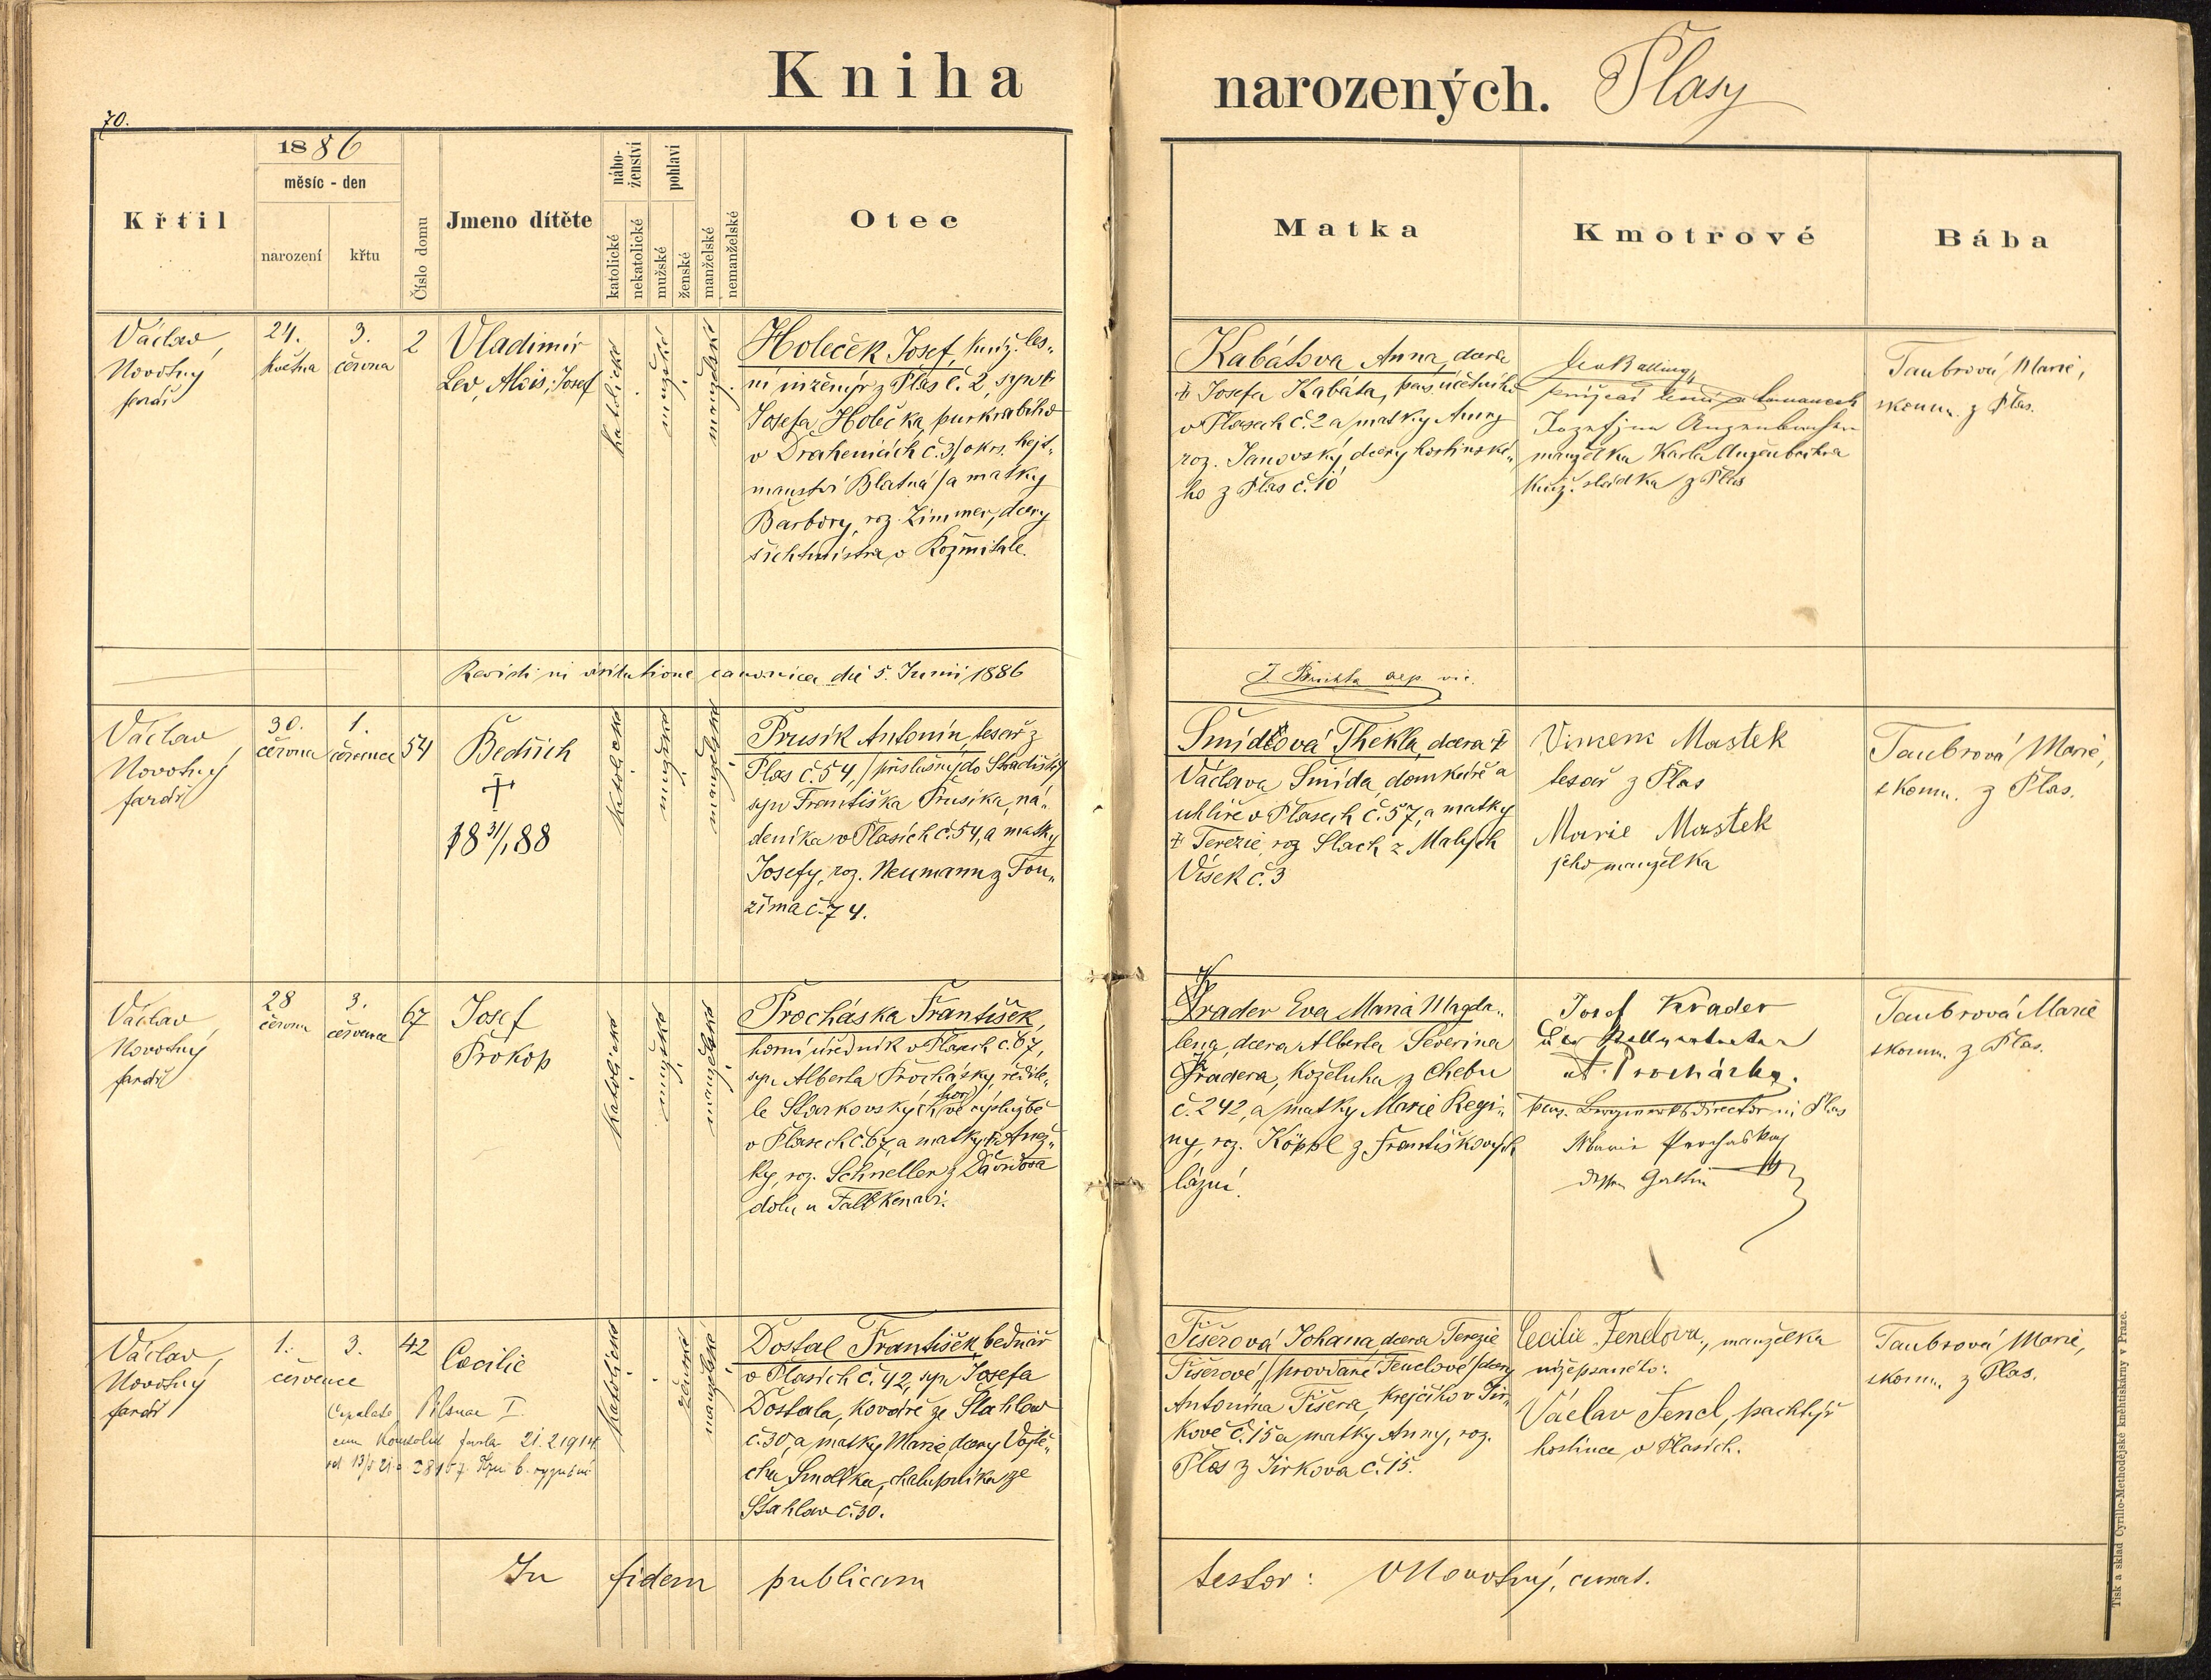 Kniha
narozených. Plasy
70.
1886
měsíc - den
Křtil
narození
křtu
Číslo domu
Jmeno dítěte
nábo-
ženství
katolické
nekatolické
pohlaví
mužské
ženské
manželské
nemanželské
Otec
Matka
Kmotrové
Bába
Václav
Novotný
farář
24.
května
3.
června
2
Vladimír
Lev, Alois, Josef
katolické
mužské
manželské
Holeček Josef, kníž. les-
ní inženýr z Plas č. 2, syn
Josefa Holečka, purkrabího
v Drahenicích č. 3 / okrs. hejt-
manství Blatná / a matky
Barbory, roz. Zimmer, dcery
šichtmistra v Rožmitále.
Kabátova Anna, dcera
† Josefa Kabáta, pens. účetního
v Plasech č. 2 a matky Anny
roz. Janovský dcery hostinské-
ho z Plas č. 10
Leo Balling
manželka Karla Augenbertra
kníž. sládka z Plas
Taubrová Marie,
zkoum. z Plas.
Revidi in visitatione canonica die 5. Junii 1886
Václav
Novotný
farář
30.
června
1.
července
54
Bedřich
†
18 31/1 88
katolické
mužské
manželské
Prusík Antonín, tesař z
Plas č. 54, / příslušný do Hradiště /
syn Františka Prusíka, ná-
deníka v Plasích č. 54, a matky
Josefy, roz. Neumann z Tou-
žima č. 74.
Šmídlová Thekla, dcera †
Václava Šmída, domkáře a
uhlíře v Plasech č. 57, a matky
† Terezie, roz. Slach z Malých
Vísek č. 3
Vincenc Mastek
tesař z Plas
Marie Mastek
jeho manželka
Taubrová Marie,
zkoum. z Plas.
Václav
Novotný
farář
28
června
3.
července
67
Josef
Prokop
katolické
mužské
manželské
Procháska František,
horní úředník v Plasech č. 67,
syn Alberta Prochásky, ředite-
le Starkovských hor ve výslužbě
v Plasech č. 67, a matky † Anež-
ky, roz. Schneller z Davidova
dolu u Falkenavi.
Krader Eva Maria Magda-
lena, dcera Alberta Severina
Kradera, koželuha z Chebu
č. 242, a matky Marie Regi-
ny, roz. Köppl z Františkových
lázní.
Josef Krader
A. Procházka.
pens. Bergwerksdirector in Plas
Marie Prochaska
dessen Gattin
Taubrová Marie
zkoum. z Plas.
Václav
Novotný
farář
1.
července
3.
42
Caecilie
Copulata Pilsnae I.
21.2.1914
katolické
ženské
manželské
Dostal František, bednář
v Plasích č. 42, syn Josefa
Dostala, kováře ze Stahlav
č. 30, a matky Marie, dcery Vojtě-
cha Smolka, chalupníka ze
Stahlav č. 30.
Fišerová Johana, dcera Terezie
Fišerové / provdané Fenclové / dcery
Antonína Fišera, krejčího v Jir-
kově č. 15 a matky Anny, roz.
Plas z Jirkova č. 15.
Cecilie Fenclova, manželka
nížepsaného:
Václav Fencl, pachtýř
hostince v Plasích.
Taubrová Marie,
zkoum. z Plas.
In fidem publicam
testor: V Novotný, curat.
Tisk a sklad Cyrillo-Methodějské knihtiskárny v Praze.